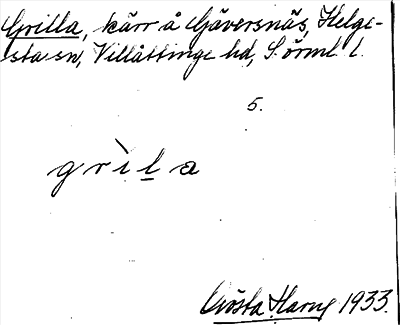 Grilla, kärr å Gäversnäs, Helge-
sta sn, Villåttinge hd, Sörml. l.
5.
grìḻa
Gösta Harng 1933.